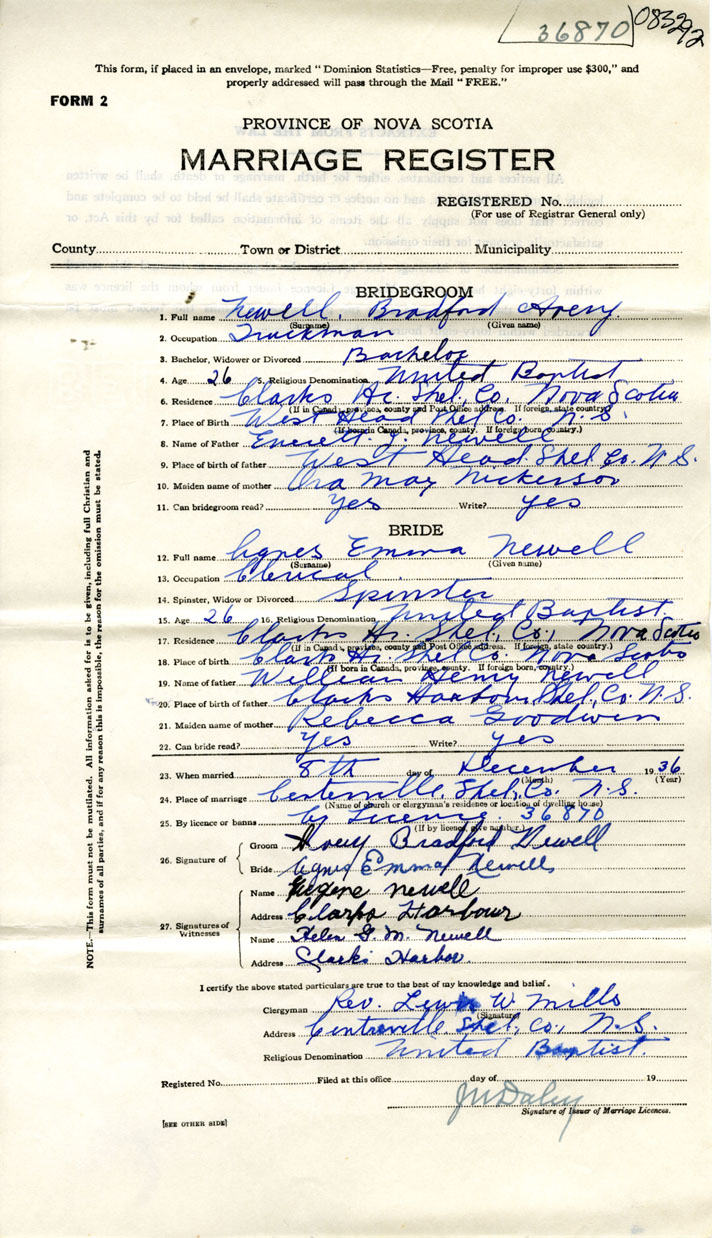 36870 083292
This form, if placed in an envelope, marked "Dominion Statistics—Free, penalty for improper use $300," and
properly addressed will pass through the Mail "FREE."
FORM 2
PROVINCE OF NOVA SCOTIA
MARRIAGE REGISTER
REGISTERED No.
(For use of Registrar General only)
County Town or District Municipality
BRIDEGROOM
1. Full name Newell, Bradford Avery
(Surname) (Given name)
2. Occupation Truckman
3. Bachelor, Widower or Divorced Bachelor
4. Age 26 5. Religious Denomination United Baptist
6. Residence Clarks Hr. Shel, Co, Nova Scotia
(If in Canada, province, county and Post Office address. If foreign, state country)
7. Place of Birth West Head Shel Co. N.S.
(If born in Canada, province, county. If foreign born, country.)
8. Name of Father Everett J. Newell
9. Place of birth of father West Head Shel Co. N.S.
10. Maiden name of mother Ora May Nickerson
11. Can bridegroom read? Yes Write? yes
BRIDE
12. Full name Agnes Emma Newell
(Surname) (Given name)
13. Occupation Clerical
14. Spinster, Widow or Divorced Spinster
15. Age 26 16. Religious Denomination United Baptist
17. Residence Clarks Hr. Shel, Co, Nova Scotia
(If in Canada, province, county and Post Office address. If foreign, state country.)
18. Place of birth Clarks Hr Shel Co Nova Scotia
(If born in Canada, province, county. If foreign born, country.)
19. Name of father William Henry Newell
20. Place of birth of father Clarks Harbour Shel, Co. N.S.
21. Maiden name of mother Rebecca Goodwin
22. Can bride read? Yes Write? yes
23. When married 8th day of December 1936
(Month) (Year)
24. Place of marriage Centerville Shel, Co. N.S.
(Name of church or clergyman's residence or location of dwelling house)
25. By licence or banns by Licence. 36870
(If by licence, give number.)
26. Signature of
Groom Avery Bradford Newell
Bride Agnes Emma Newell
27. Signatures of Witnesses
Name Eugene Newell
Address Clarks Harbour
Name Helen G. M. Newell
Address Clarks Harbor
I certify the above stated particulars are true to the best of my knowledge and belief.
Clergyman Rev. Lewis W. Mills
(Signature)
Address Centreville Shel, Co, N.S.
Religious Denomination United Baptist.
Registered No. Filed at this office day of 19
Signature of Issuer of Marriage Licences.
[SEE OTHER SIDE]
NOTE.—This form must not be mutilated. All information asked for is to be given, including full Christian and
surnames of all parties, and if for any reason this is impossible, the reason for the omission must be stated.